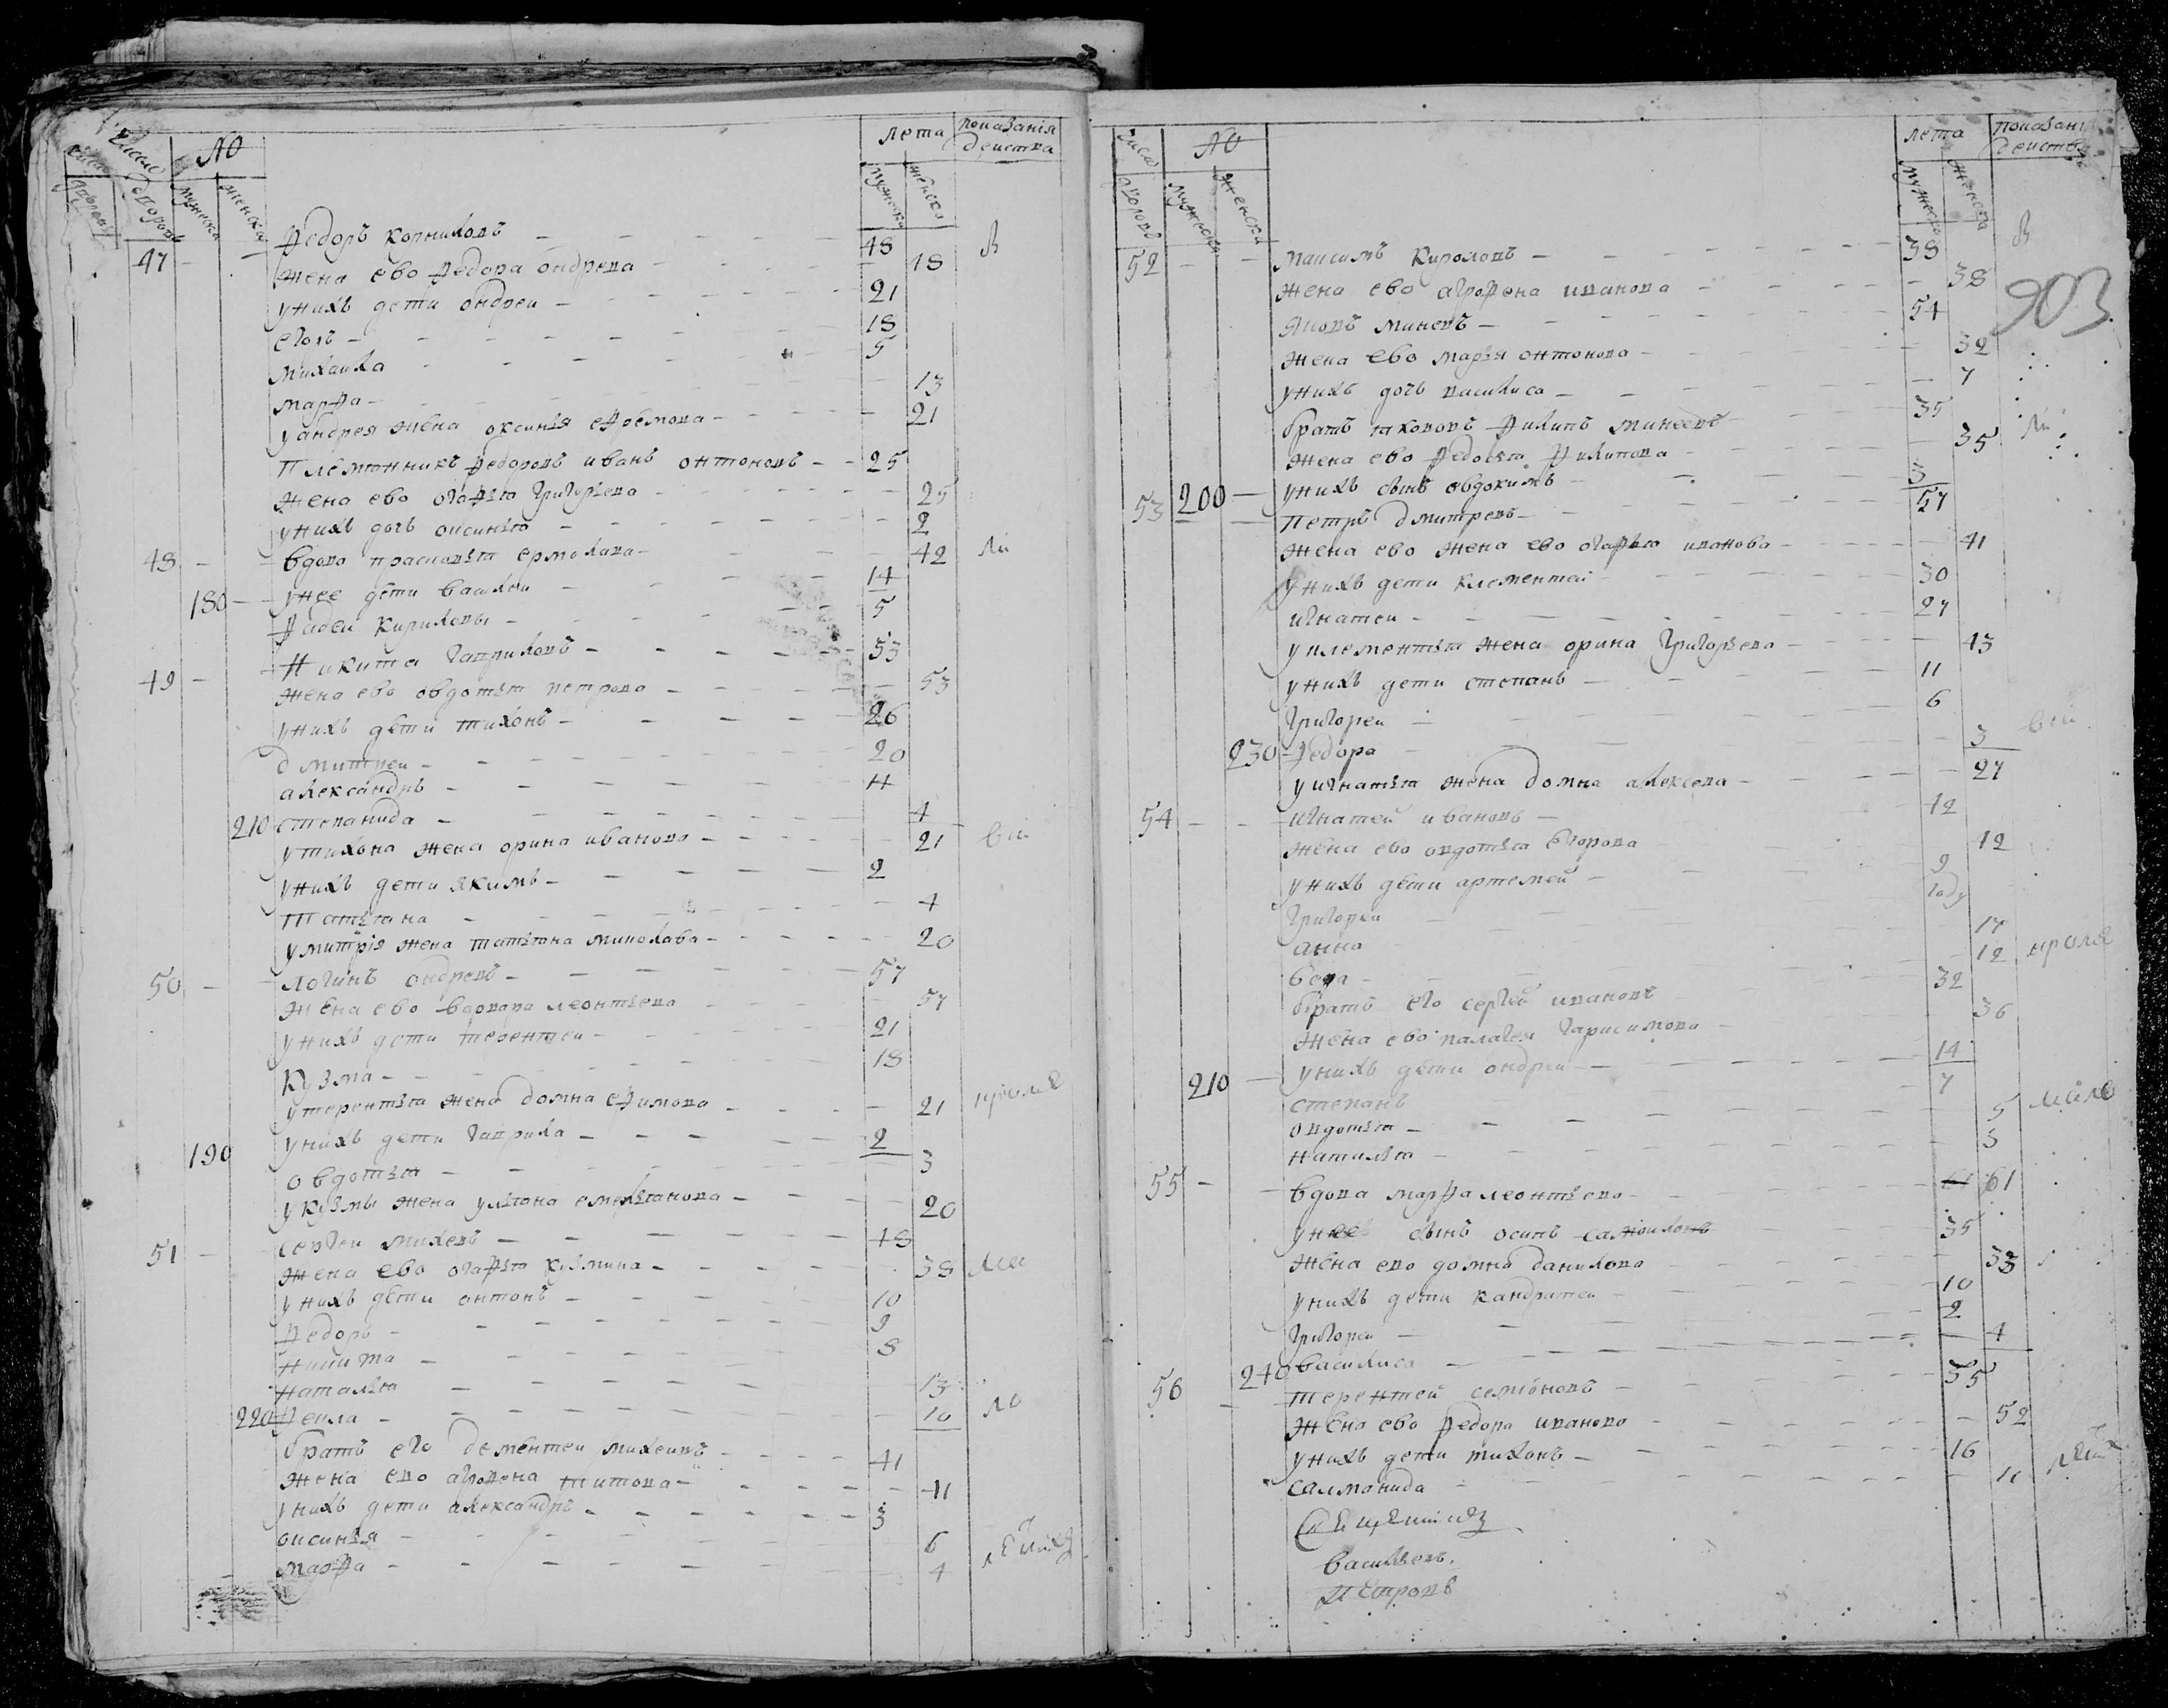 число № лета показанія
действа
дворовъ мужеска женска мужеска женска
47 — — федоръ корниловъ — 48 в
жена ево федора ондрева — 48
унихъ дети ондреи — 21
егоръ — 18
михаила — 5
марфа — 13
уандрея жена оксинья ефремова — 21
племянникъ федоровъ иванъ онтоновъ — 25
жена ево огафья григорьева — 25
унихъ дочь оксинья — 2
48 — — вдова прасковья ермолава — 42 ли
180 — унее дети василеи — 14
фадеи кириловы — 5
49 — — никита гавриловъ — 53
жена ево овдотья петрова — 53
унихъ дети тихонъ — 26
дмитреи — 20
александръ — 11
210 степанида — 4
утихона жена орина иванова — 21 вои
унихъ дети якимъ — 2
татьяна — 4
умитрія жена татьяна миколава — 20
50 — — логинъ ондревъ — 57
жена ево варвара леонтьева — 57
унихъ дети терентеи — 21
кузма — 18
утерентья жена домна ефимова — 21
190 унихъ дети гаврила — 2
овдотья — 3
укузмы жена ульяна емельянова — 20
51 — сергеи михевъ — 48
жена ево огафья кузмина — 38
унихъ дети онтонъ — 10
федоръ — 9
никита — 8
наталья — 13
220 фекла — 10 ло
братъ его дементеи михеивъ — 41
жена ево агрофена титова — 41
унихъ дети александръ — 3
оксинья — 6
марфа — 4
число № лета показани
действ
дворовъ мужеска женски мужеска женска
52 — — максимъ кироловъ — 38 в
жена ево агрофена иванова — 38
903
яковъ миневъ — 54
жена ево марья онтонова — 32
унихъ дочь василиса — 7
братъ якововъ филипъ минеевъ — 35 ли
жена ево федосья филипова — 35
200 — унихъ сынъ овдокимъ — 3
53 — петръ дмитревъ — 57
жена ево жена ево огафья иванова — 41
унихъ дети клементеи — 30
игнатеи — 27
уклементья жена орина григорьева — 43
унихъ дети степанъ — 11
григореи — 6
230 федора — 3 вои
уигнатья жена домна алексева — 27
54 — — игнатей ивановъ — 42
жена ево овдотья егорова 42
унихъ дети артемей — 9
григореи — году
анна — 17
вера — 12
братъ его сергей ивановъ 32
жена ево палагея гарисимова — 36
210 — унихъ дети ондреи — 14
степанъ 7
овдотья — 5
наталья — 3
55 — — вдова марфа леонтьева — 61 61
унее сынъ осипъ самоиловъ 35
жена ево домна данилова — 33
унихъ дети кандратеи — 10
григореи — 2
240 василиса — 4
56 — терентей семіоновъ — 55
жена ево федора иванова — 52
унихъ дети тихонъ — 16
саломонида — 11
васильевъ.
петровъ